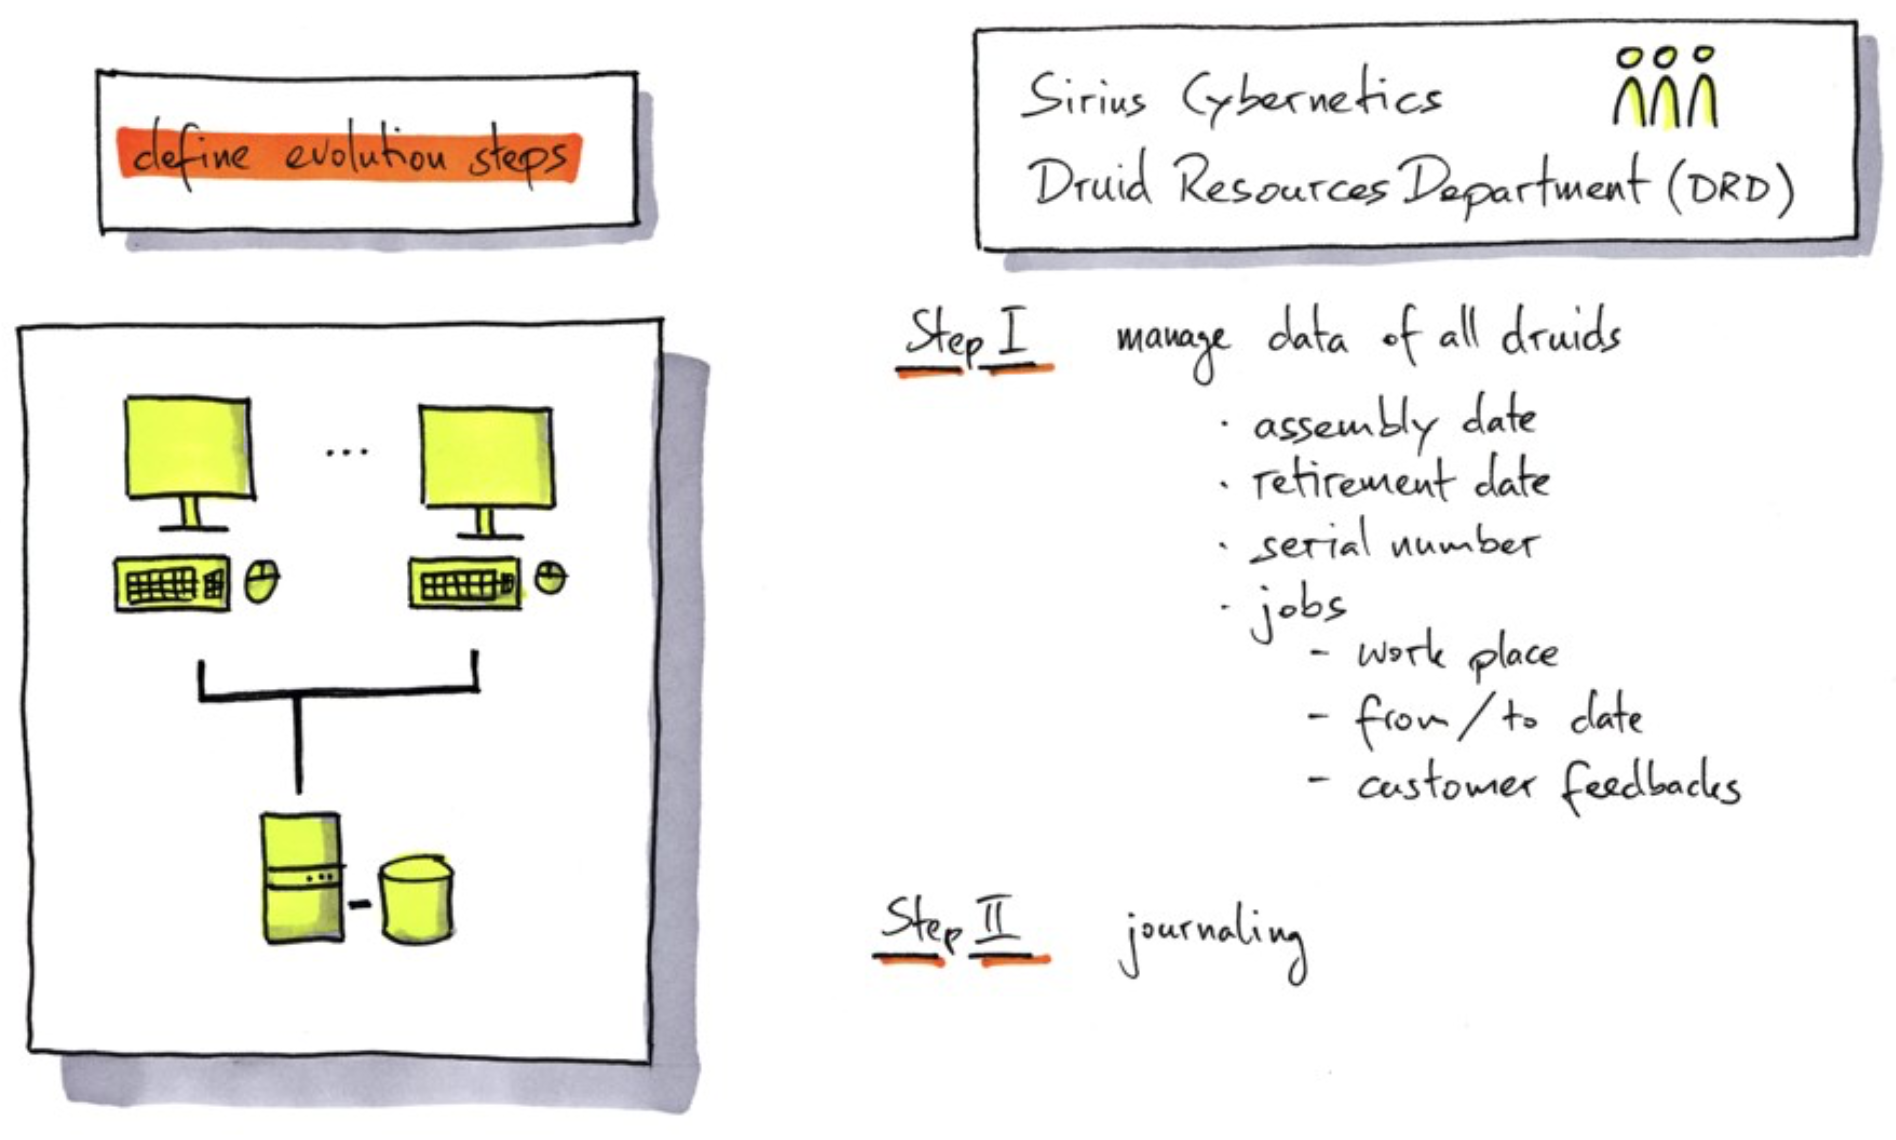 define evolution steps
Sirius Cybernetics
Druid Resources Department (DRD)
Step I manage data of all druids
· assembly date
· retirement date
· serial number
· jobs
- work place
- from/to date
- customer feedbacks
...
Step II journaling